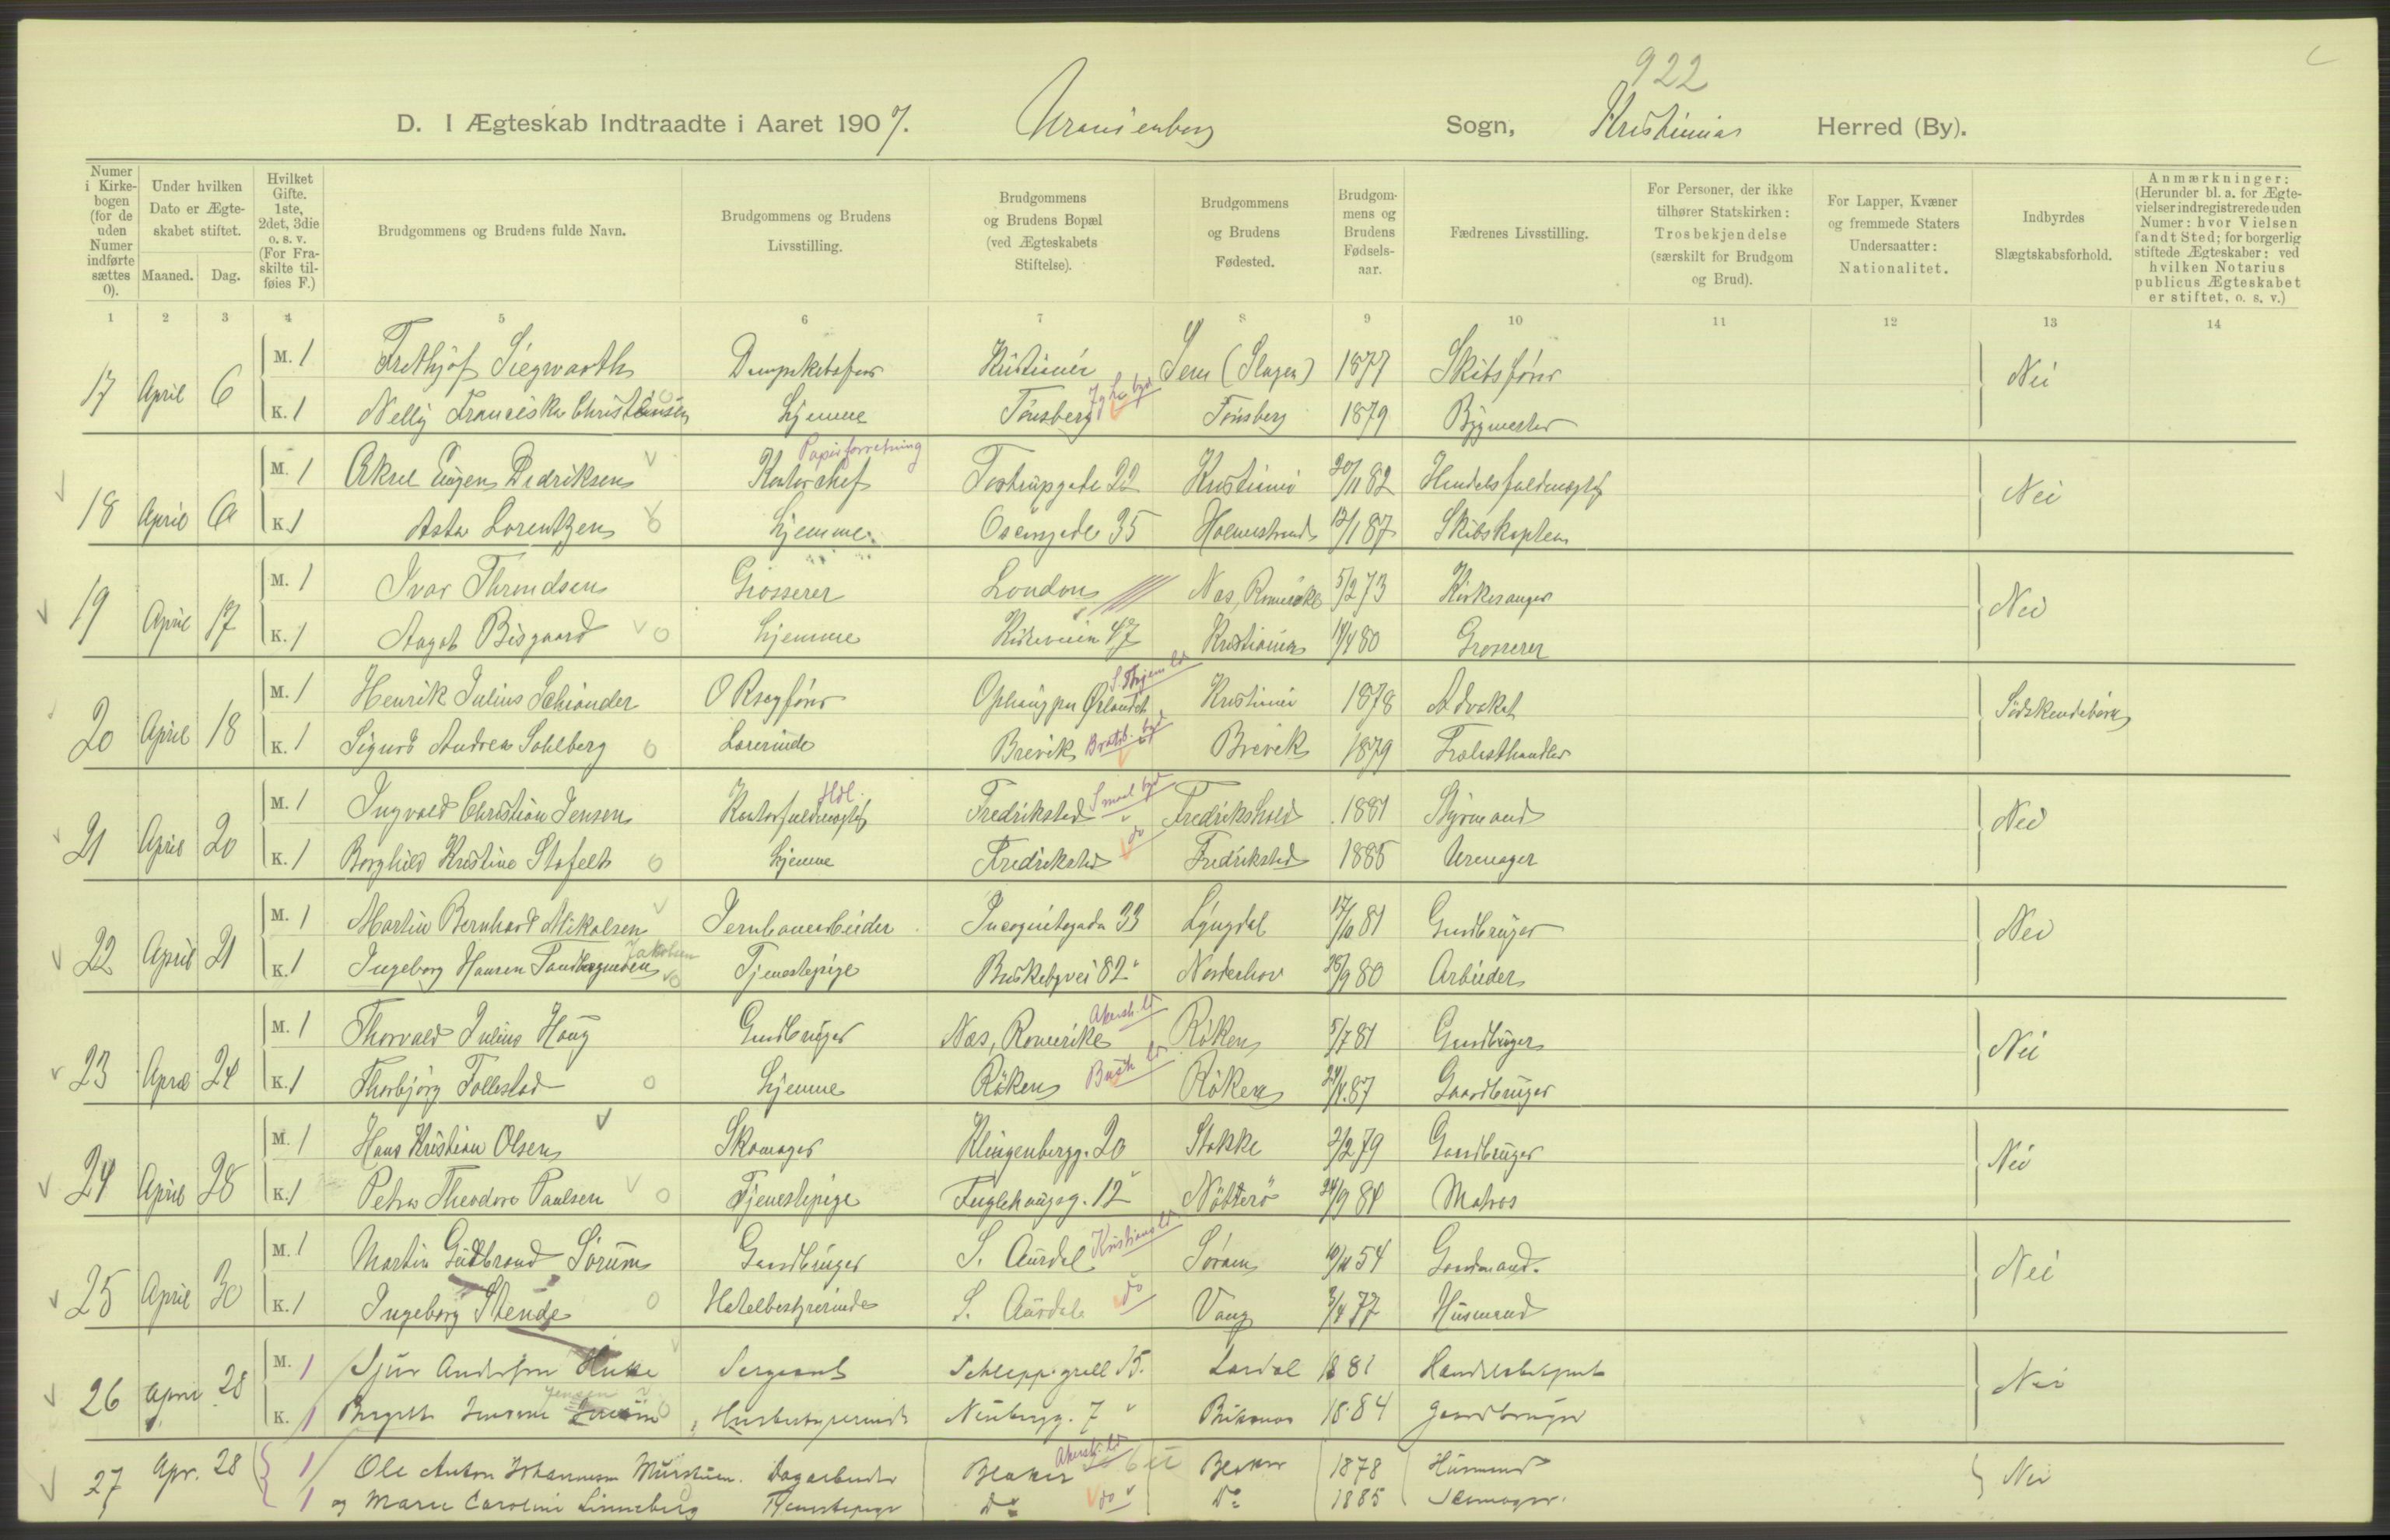 922
D. I Ægteskab Indtraadte i Aaret 1907. Uranienborg Sogn, Kristiania Herred (By).
Numer i Kirkebogen (for de uden Numer indførte sættes 0).
Under hvilken Dato er Ægteskabet stiftet.
Maaned. Dag.
Hvilket Gifte. 1ste, 2det, 3die o. s. v. (For Fraskilte tilføies F.)
Brudgommens og Brudens fulde Navn.
Brudgommens og Brudens Livsstilling.
Brudgommens og Brudens Bopæl (ved Ægteskabets Stiftelse).
Brudgommens og Brudens Fødested.
Brudgommens og Brudens Fødselsaar.
Fædrenes Livsstilling.
For Personer, der ikke tilhører Statskirken: Trosbekjendelse (særskilt for Brudgom og Brud).
For Lapper, Kvæner og fremmede Staters Undersaatter: Nationalitet.
Indbyrdes Slægtskabsforhold.
Anmærkninger: (Herunder bl. a. for Ægtevielser indregistrerede uden Numer: hvor Vielsen fandt Sted; for borgerlig stiftede Ægteskaber: ved hvilken Notarius publicus Ægteskabet er stiftet, o. s. v.)
1 2 3 4 5 6 7 8 9 10 11 12 13 14
17 April 6 M. 1 Frethjof Siegwarth Kristiania Sem (Slagen) 1877 Skibsfører Nei
K. 1 Nelly Franciska Christensen hjemme Tønsberg Tønsberg 1879 Bygmester
Papirforretning
18 April 6 M. 1 Aksel Eugen Dedriksen Kontorchef Tostrupgade 22 Kristiania 20/11 82 Handelsfuldmægtig Nei
K. 1 Asta Lorentzen hjemme Oscarsgade 35 Holmestrand 12/1 87 Skibskaptein
19 April 17 M. 1 Ivar Throndsen Grosserer London Nes, Romerike 5/2 73 Kirkesanger Nei
K. 1 Aagot Bisgaard hjemme Kirkeveien 47 Kristiania 80 Grosserer
20 April 18 M. 1 Henrik Julius Schiander O Rsagfører Kristiania 1878 Advokat Sødskendebørn
K. 1 Sigurd Andrea Sahlberg Lærerinde Brevik Bratsb. Brevik 1879 Trælasthandler
Hdl.
21 April 20 M. 1 Ingvald Christian Jensen Kontorfuldmægtig Fredrikstad Fredrikshald 1881 Styrmand Nei
K. 1 Borghild Kristine Stafelt hjemme Fredrikstad do Fredrikstad 1885 Urmager
22 April 21 M. 1 Martin Bernhard Mikalsen Jernbanearbeider Incognitogada 33 Lyngdal 81 Gaardbruger Nei
Jakobsen
K. 1 Ingeborg Hansen Tjenestepige Briskebyvei 82 Norderhov 25/9 80 Arbeider
23 April 24 M. 1 Thorvald Julius Haug Gaardbruger Nes, Romerike Akersh. Røken 5/7 81 Gaardbruger Nei
K. 1 Thorbjørg Follestad hjemme Røken Busk. Røken 87 Gaardbruger
24 April 28 M. 1 Hans Kristian Olsen Skomager Klingenbergg. 20 Stokke 2/2 79 Gaardbruger Nei
K. 1 Petra Theodora Paulsen Tjenestepige Fuglehaugsg. 12 Nøtterø 24/9 84 Matros
25 April 30 M. 1 Martin Gudbrand Sørum Gaardbruger S. Aurdal Kristians Søraum 54 Gaardmand. Nei
K. 1 Ingeborg Stende Hotelbestyrerinde S. Aurdal do Vang 3/4 77 Husmand
26 April 28 M. 1 Sjur Anderssen Sergeant Schleppegrell 15. Lærdal 1881 Nei
Jensen
K. 1 Husbestyrerinde Neubergg. 7 1884 Gaardbruger
27 Apr. 28 1 Ole Anton Johannessen Dagarbeider Blaker Akersh. Blaker 1878 Husmand Nei
1 og Maren Caroline Linneberg Tjenestepige Do do Do 1885 Skomager.